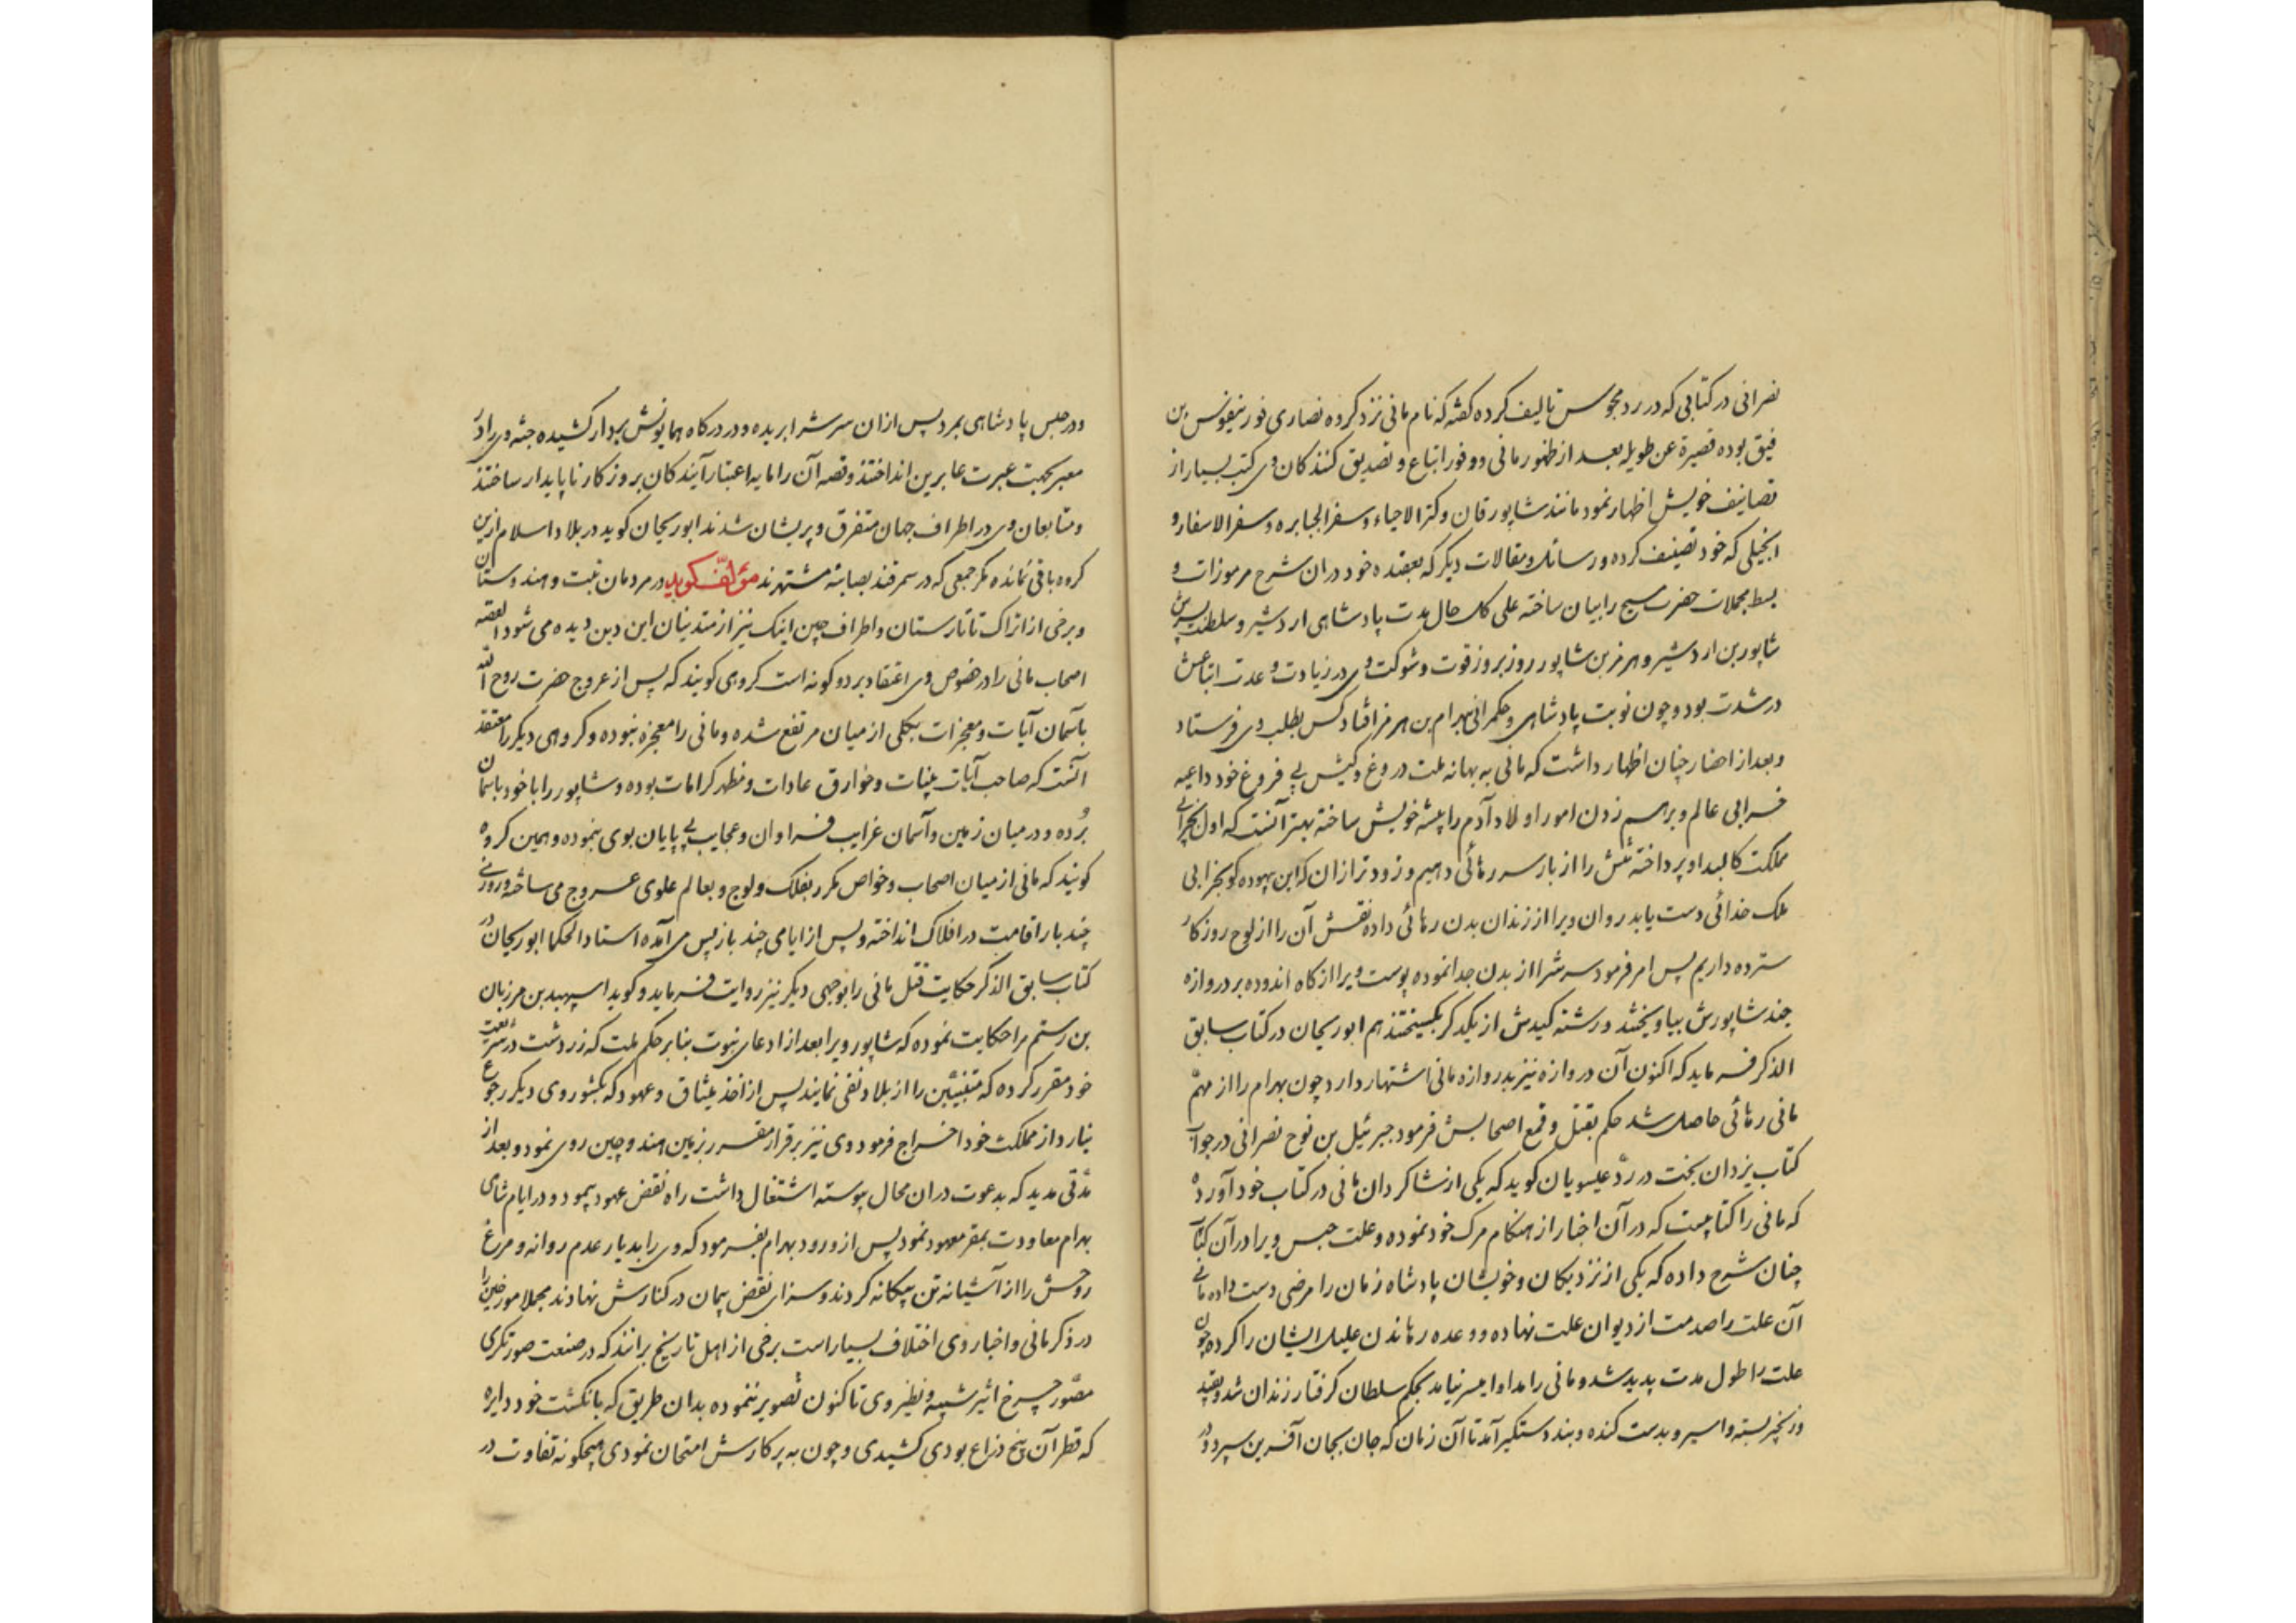 نصرانی در کتابی که در رد مجوس تالیف کرده گفته که نام مانی نزد کرده نصاری قورنیقوس بن
فیق بوده قصیرة عن طویله بعد از ظهور مانی و وفور اتباع و تصدیق کنندکان وی کتب بسیار از
تصانیف خویش اظهار نمود مانند شاپورقان و کنز الاحیاء و سفر الجبابره و سفر الاسفار و
انجیلی که خود تصنیف کرده و رسائل و مقالات دیکر که بعقیده خود در ان شرح مرموزات و
بسط مجملات حضرت مسیح را بیان ساخته علی کل حال مدت پادشاهی اردشیر و سلطنت پسرش
شاپور بن اردشیر و هرمز بن شاپور روز بروز قوت و شوکت وی در زیادت و عدت اتباعش
در شدت بود و چون نوبت پادشاهی و حکمرانی بهرام بن هرمز افتاد کس بطلب وی فرستاد
و بعد از احضار چنان اظهار داشت که مانی به بهانه ملت دروغ و کیش بی فروغ خود داعیه
خرابی عالم و برهم زدن امور اولاد آدم را پیشه خویش ساخته بهتر آنست که اول بخرابی
مملکت کالبد او پرداخته تنش را از بار سر رهائی دهیم و زودتر از ان که این بیهوده کو بخرابی
ملک خدائی دست یابد روان ویرا از زندان بدن رهائی داده نقش آن را از لوح روزکار
سترده داریم پس امر فرمود سرش را از بدن جدا نموده پوست ویرا از کاه اندوده بر دروازه
جند شاپورش بیاویختند و رشته کیدش از یکدکر بکسیختند هم ابوریحان در کتاب سابق
الذکر فرماید که اکنون آن دروازه نیز بدروازه مانی اشتهار دارد چون بهرام را از مهم
مانی رهائی حاصل شد حکم بقتل و قمع اصحابش فرمود جبرئیل بن نوح نصرانی در جواب
کتاب یزدان بخت در رد عیسویان کوید که یکی از شاکردان مانی در کتاب خود آورده
که مانی را کتابیست که در آن اخبار از هنکام مرک خود نموده و علت حبس ویرا در آن کتاب
چنان شرح داده که یکی از نزدیکان و خویشان پادشاه زمان را مرضی دست داده مانی
آن علت را صدمت از دیوان علت نهاده و وعده رهاندن علیل ایشان را کرده چون
علت را طول مدت پدید شد و مانی را مداوا میسر نیامد بحکم سلطان کرفتار زندان شد و بقید
و زنجیر بسته و اسیر و بدست کنده و بند دستکیر آمد تا آن زمان که جان بجان آفرین سپرد و در
و در حبس پادشاهی بمرد پس از ان سرش را بریده و در درکاه همایونش بردار کشیده جثه وی را در
معبر بجهت عبرت عابرین انداختند و قصه آن را مایه اعتبار آیندکان بروزکار ناپایدار ساختند
و متابعان وی در اطراف جهان متفرق و پریشان شدند ابوریحان کوید در بلاد اسلام ازین
کروه باقی نمانده مکر جمعی که در سمرقند بصابئه مشتهرند مؤلف کوید در مردمان تبت و هندوستان
و برخی از اتراک تاتارستان و اطراف چین اینک نیز از متدینان این دین دیده می شود القصه
اصحاب مانی را در خصوص وی اعتقاد بر دو کونه است کروهی کویند که پس از عروج حضرت روح الله
بآسمان آیات و معجزات بکلی از میان مرتفع شده و مانی را معجزه نبوده و کروهی دیکر را معتقد
آنست که صاحب آیات بینات و خوارق عادات و مظهر کرامات بوده و شاپور را با خود باسمان
برده و در میان زمین و آسمان غرایب فراوان و عجایب بی پایان بوی بنموده و همین کروه
کویند که مانی از میان اصحاب و خواص مکرر بفلک ولوج و بعالم علوی عروج می ساخته و روزی
چند بار اقامت در افلاک انداخته و پس از ایامی چند باز پس می آمده استاد الحکما ابوریحان در
کتاب سابق الذکر حکایت قتل مانی را بوجهی دیکر نیز روایت فرماید و کوید اسپهبد بن مرزبان
بن رستم مرا حکایت نموده که شاپور ویرا بعد از ادعای نبوت بنابر حکم ملت که زردشت در شریعت
خود مقرر کرده که متنبئین را از بلاد نفی نمایند پس از اخذ میثاق و عهود که بکشور وی دیکر رجوع
نیارد از مملکت خود اخراج فرمود وی نیز برقرار مقرر بزمین هند و چین روی نمود و بعد از
مدتی مدید که بدعوت در ان محال پیوسته اشتغال داشت راه نقض عهود پیمود و در ایام شاهی
بهرام معاودت بمقر معهود نمود پس از ورود بهرام بفرمود که وی را بدیار عدم روانه و مرغ
روحش را از آشیانه تن بیکانه کردند و سزای نقض پیمان در کنارش نهادند مجملا مورخین را
در ذکر مانی و اخبار وی اختلاف بسیار است برخی از اهل تاریخ برانند که در صنعت صورتکری
مصور چرخ اثیر شبیه و نظیر وی تاکنون تصویر ننموده بدان طریق که بانکشت خود دایره
که قطر آن پنج ذراع بودی کشیدی و چون به پرکارش امتحان نمودی هیچکونه تفاوت در